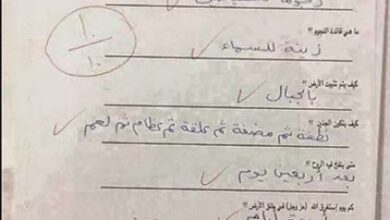 ١٠
١٠
ما هي فائدة النجوم؟
زينة للسماء
كيف يتم تثبيت الأرض؟
بالجبال
كيف يتكون الجنين؟
نطفة ثم مضغة ثم علقة ثم عظام ثم لحم
متى ينفخ فيه الروح؟
بعد أربعين يوم
كم يوم إستغرق الله (عز وجل) في خلق الأرض؟